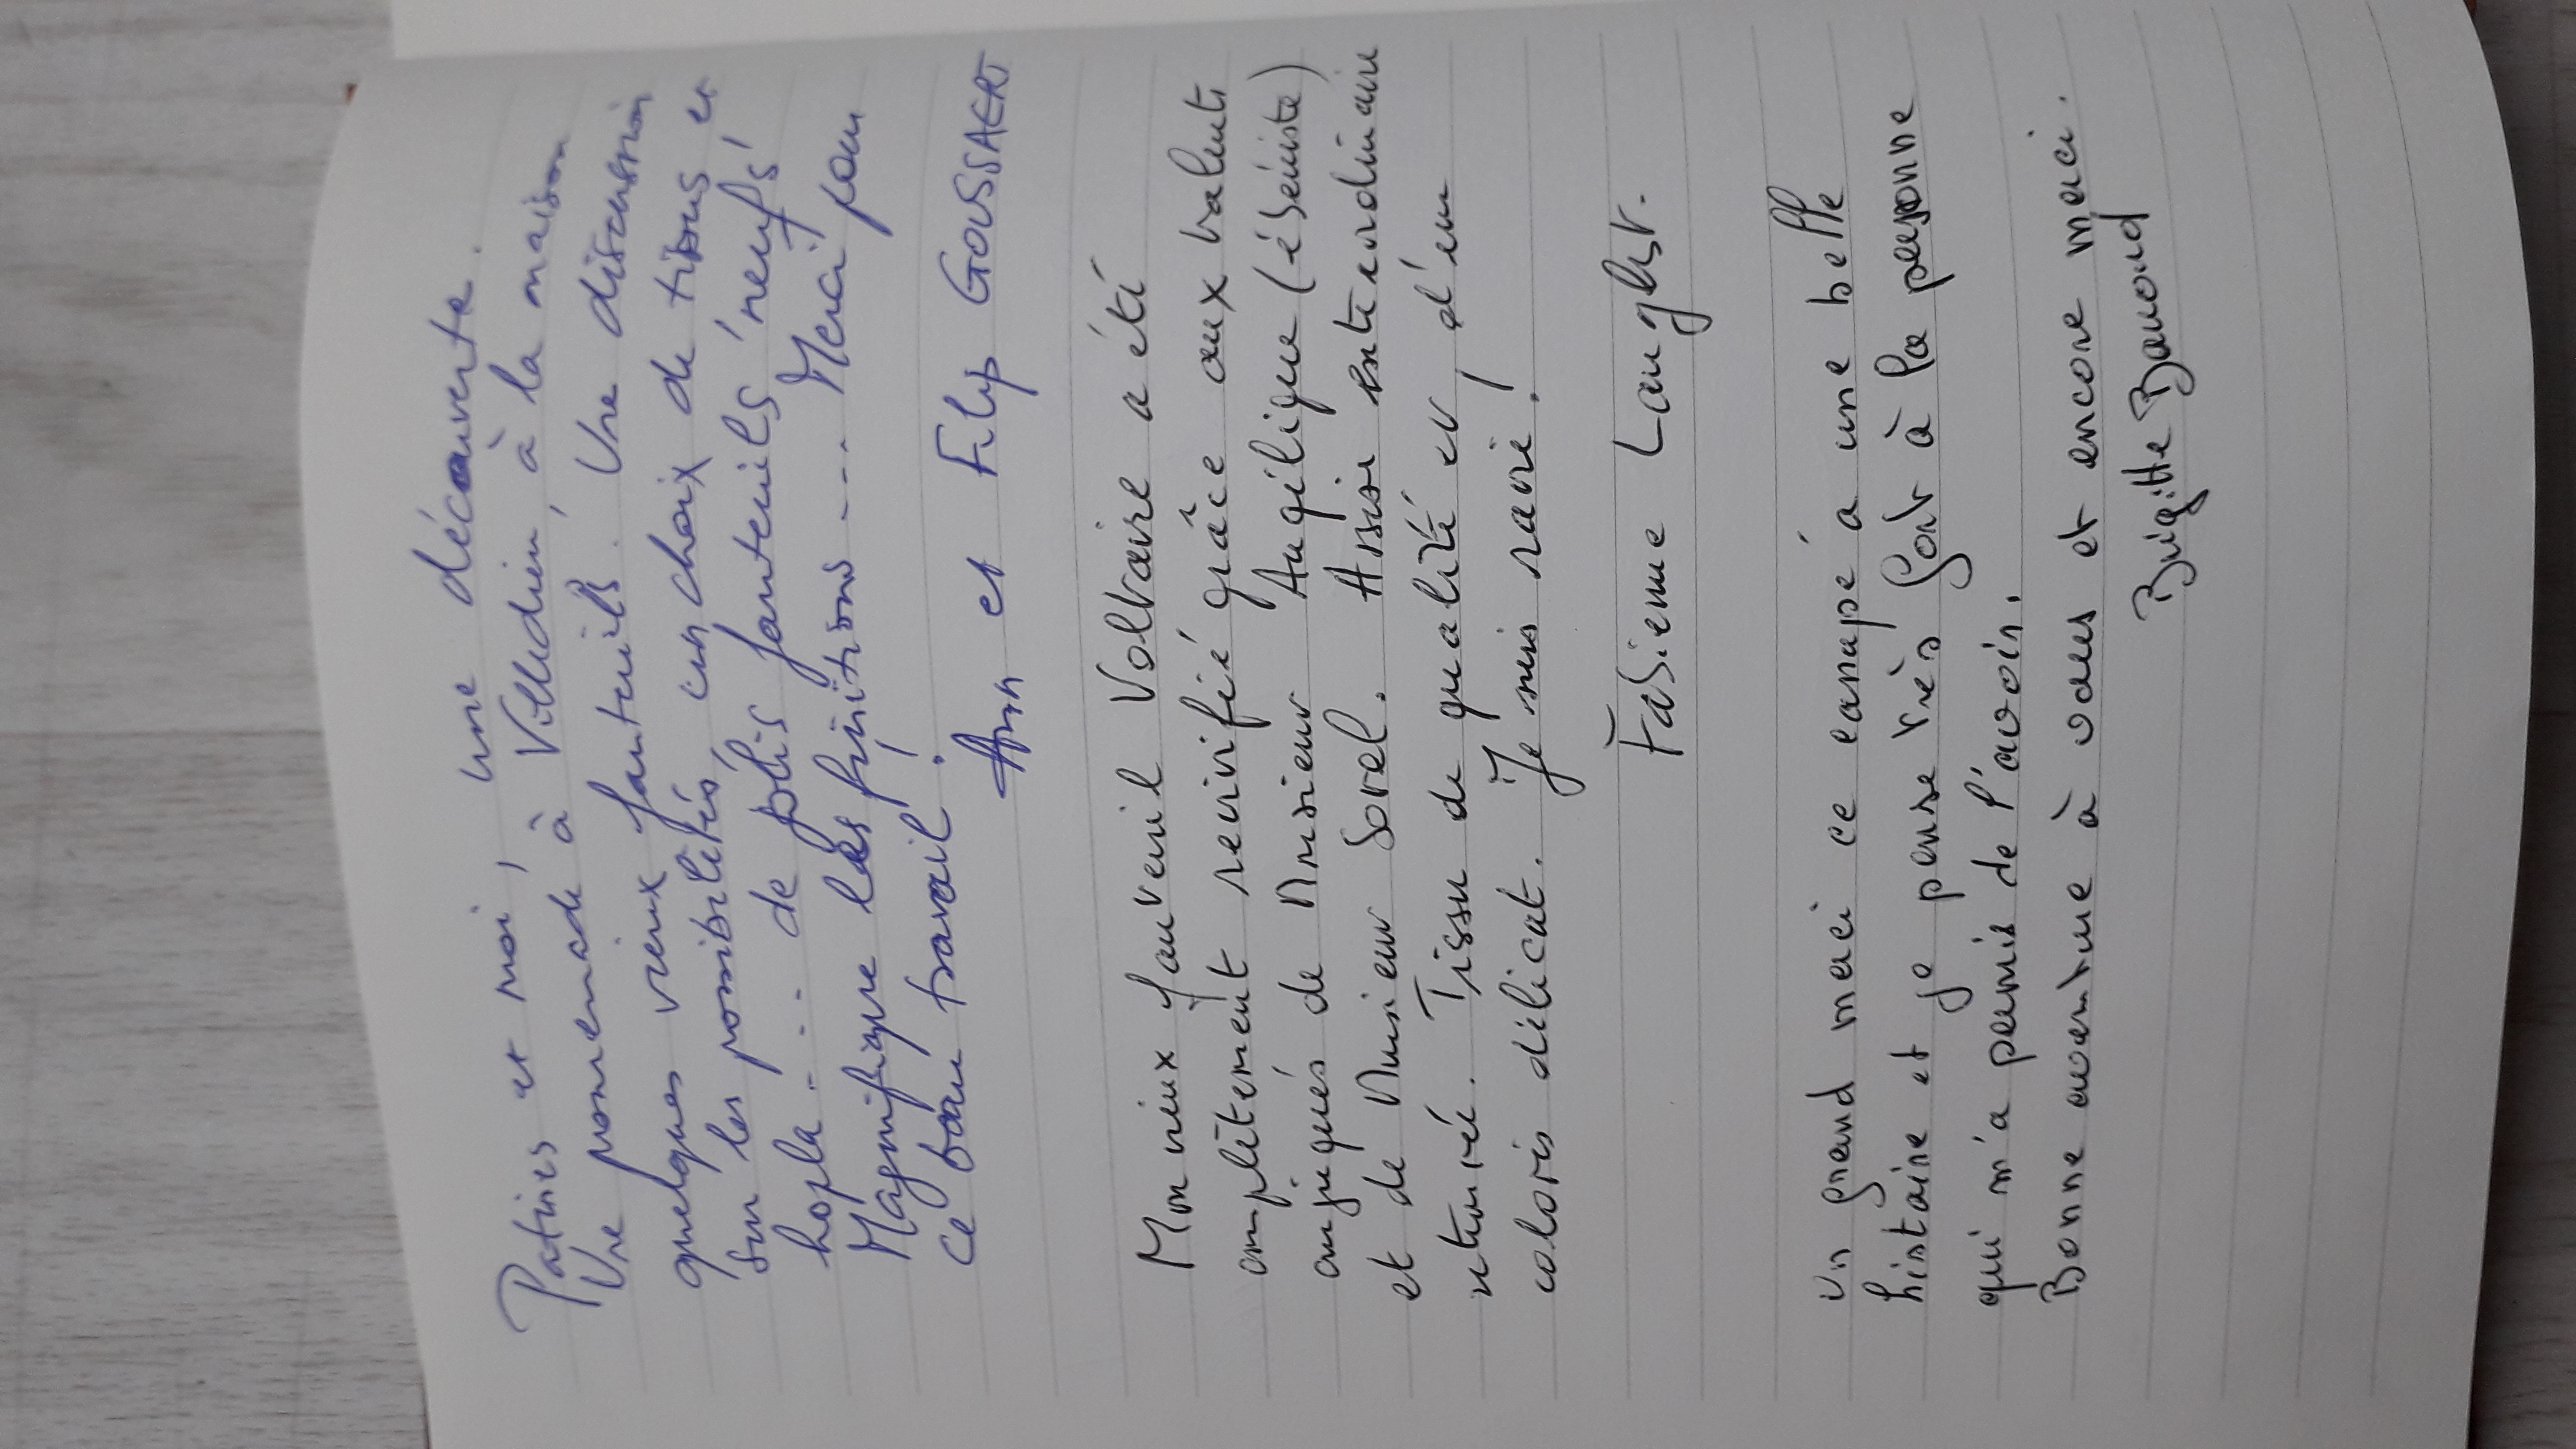 Patines et moi, une découverte.
Une promenade à Villedieu, à la maison
quelques vieux fauteuils. Une discussion
sur les possibilités, un choix de tissus et
hopla .... de jolis fauteuils 'neufs'
Magnifique les finitions .... Merci pour
ce beau travail !
Ann et Filip GOUSSAERT
Mon vieux fauteuil Voltaire a été
complètement revivifié grâce aux talents
conjugués de Monsieur Angélique (ébéniste)
et de Monsieur Sorel. Assise extraordinaire
retrouvée. Tissu de qualité et, d'un
coloris délicat. Je suis ravie !
Fabienne Langlet.
Un grand merci ce canapé a une belle
histoire et je pense très fort à la personne
qui m'a permis de l'avoir.
Bonne aventure à vous et encore merci.
Brigitte